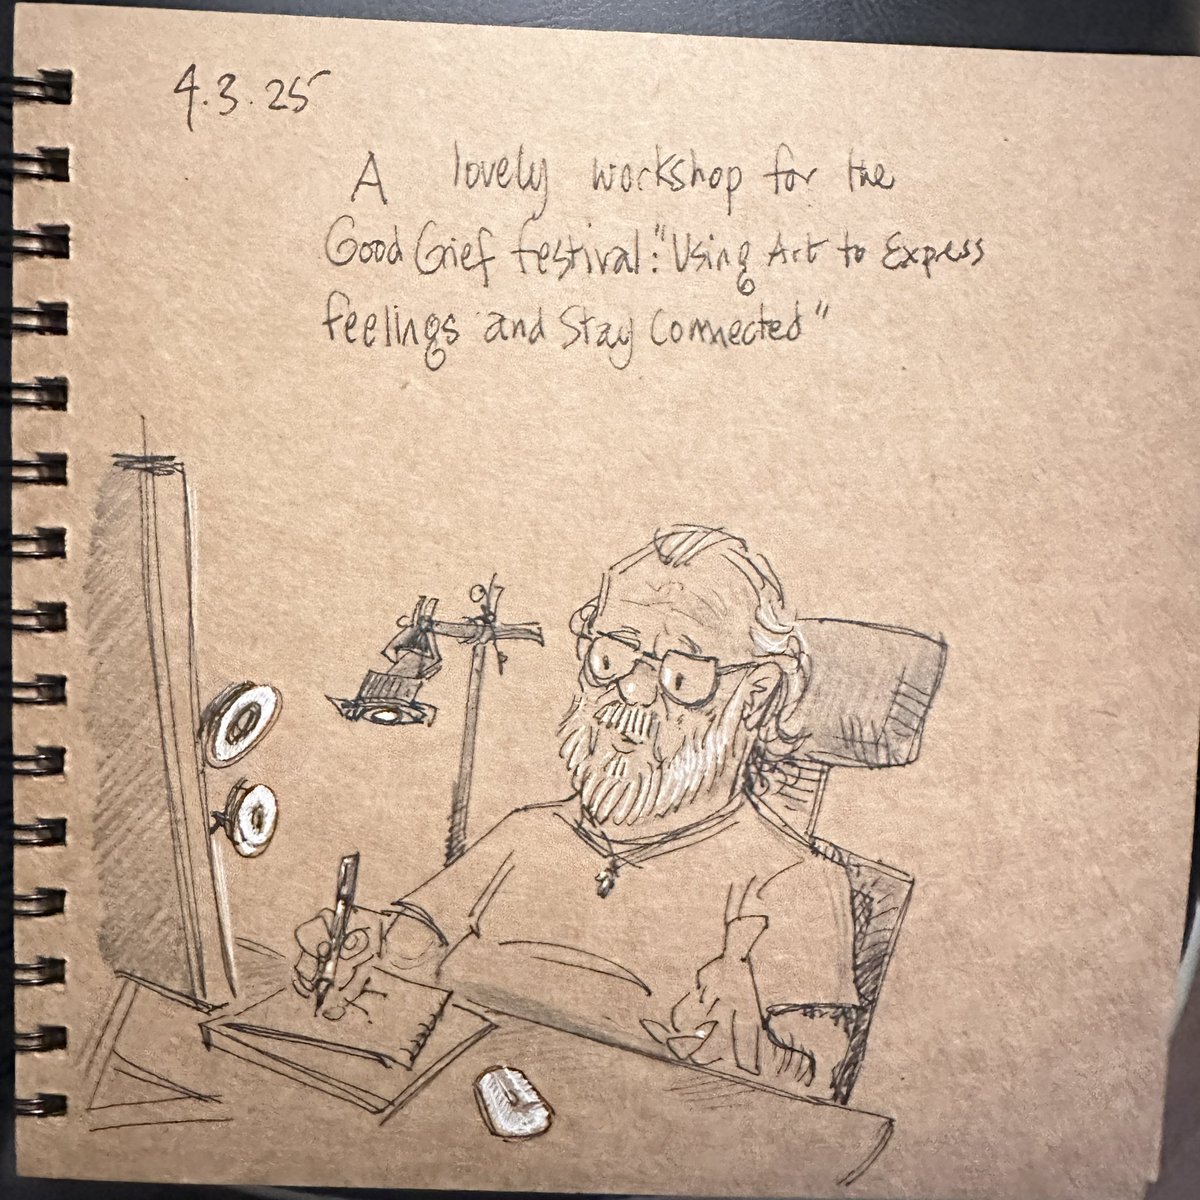 4.3.25
A lovely workshop for the
Good Grief festival: "Using Art to Express
feelings and Stay Connected"